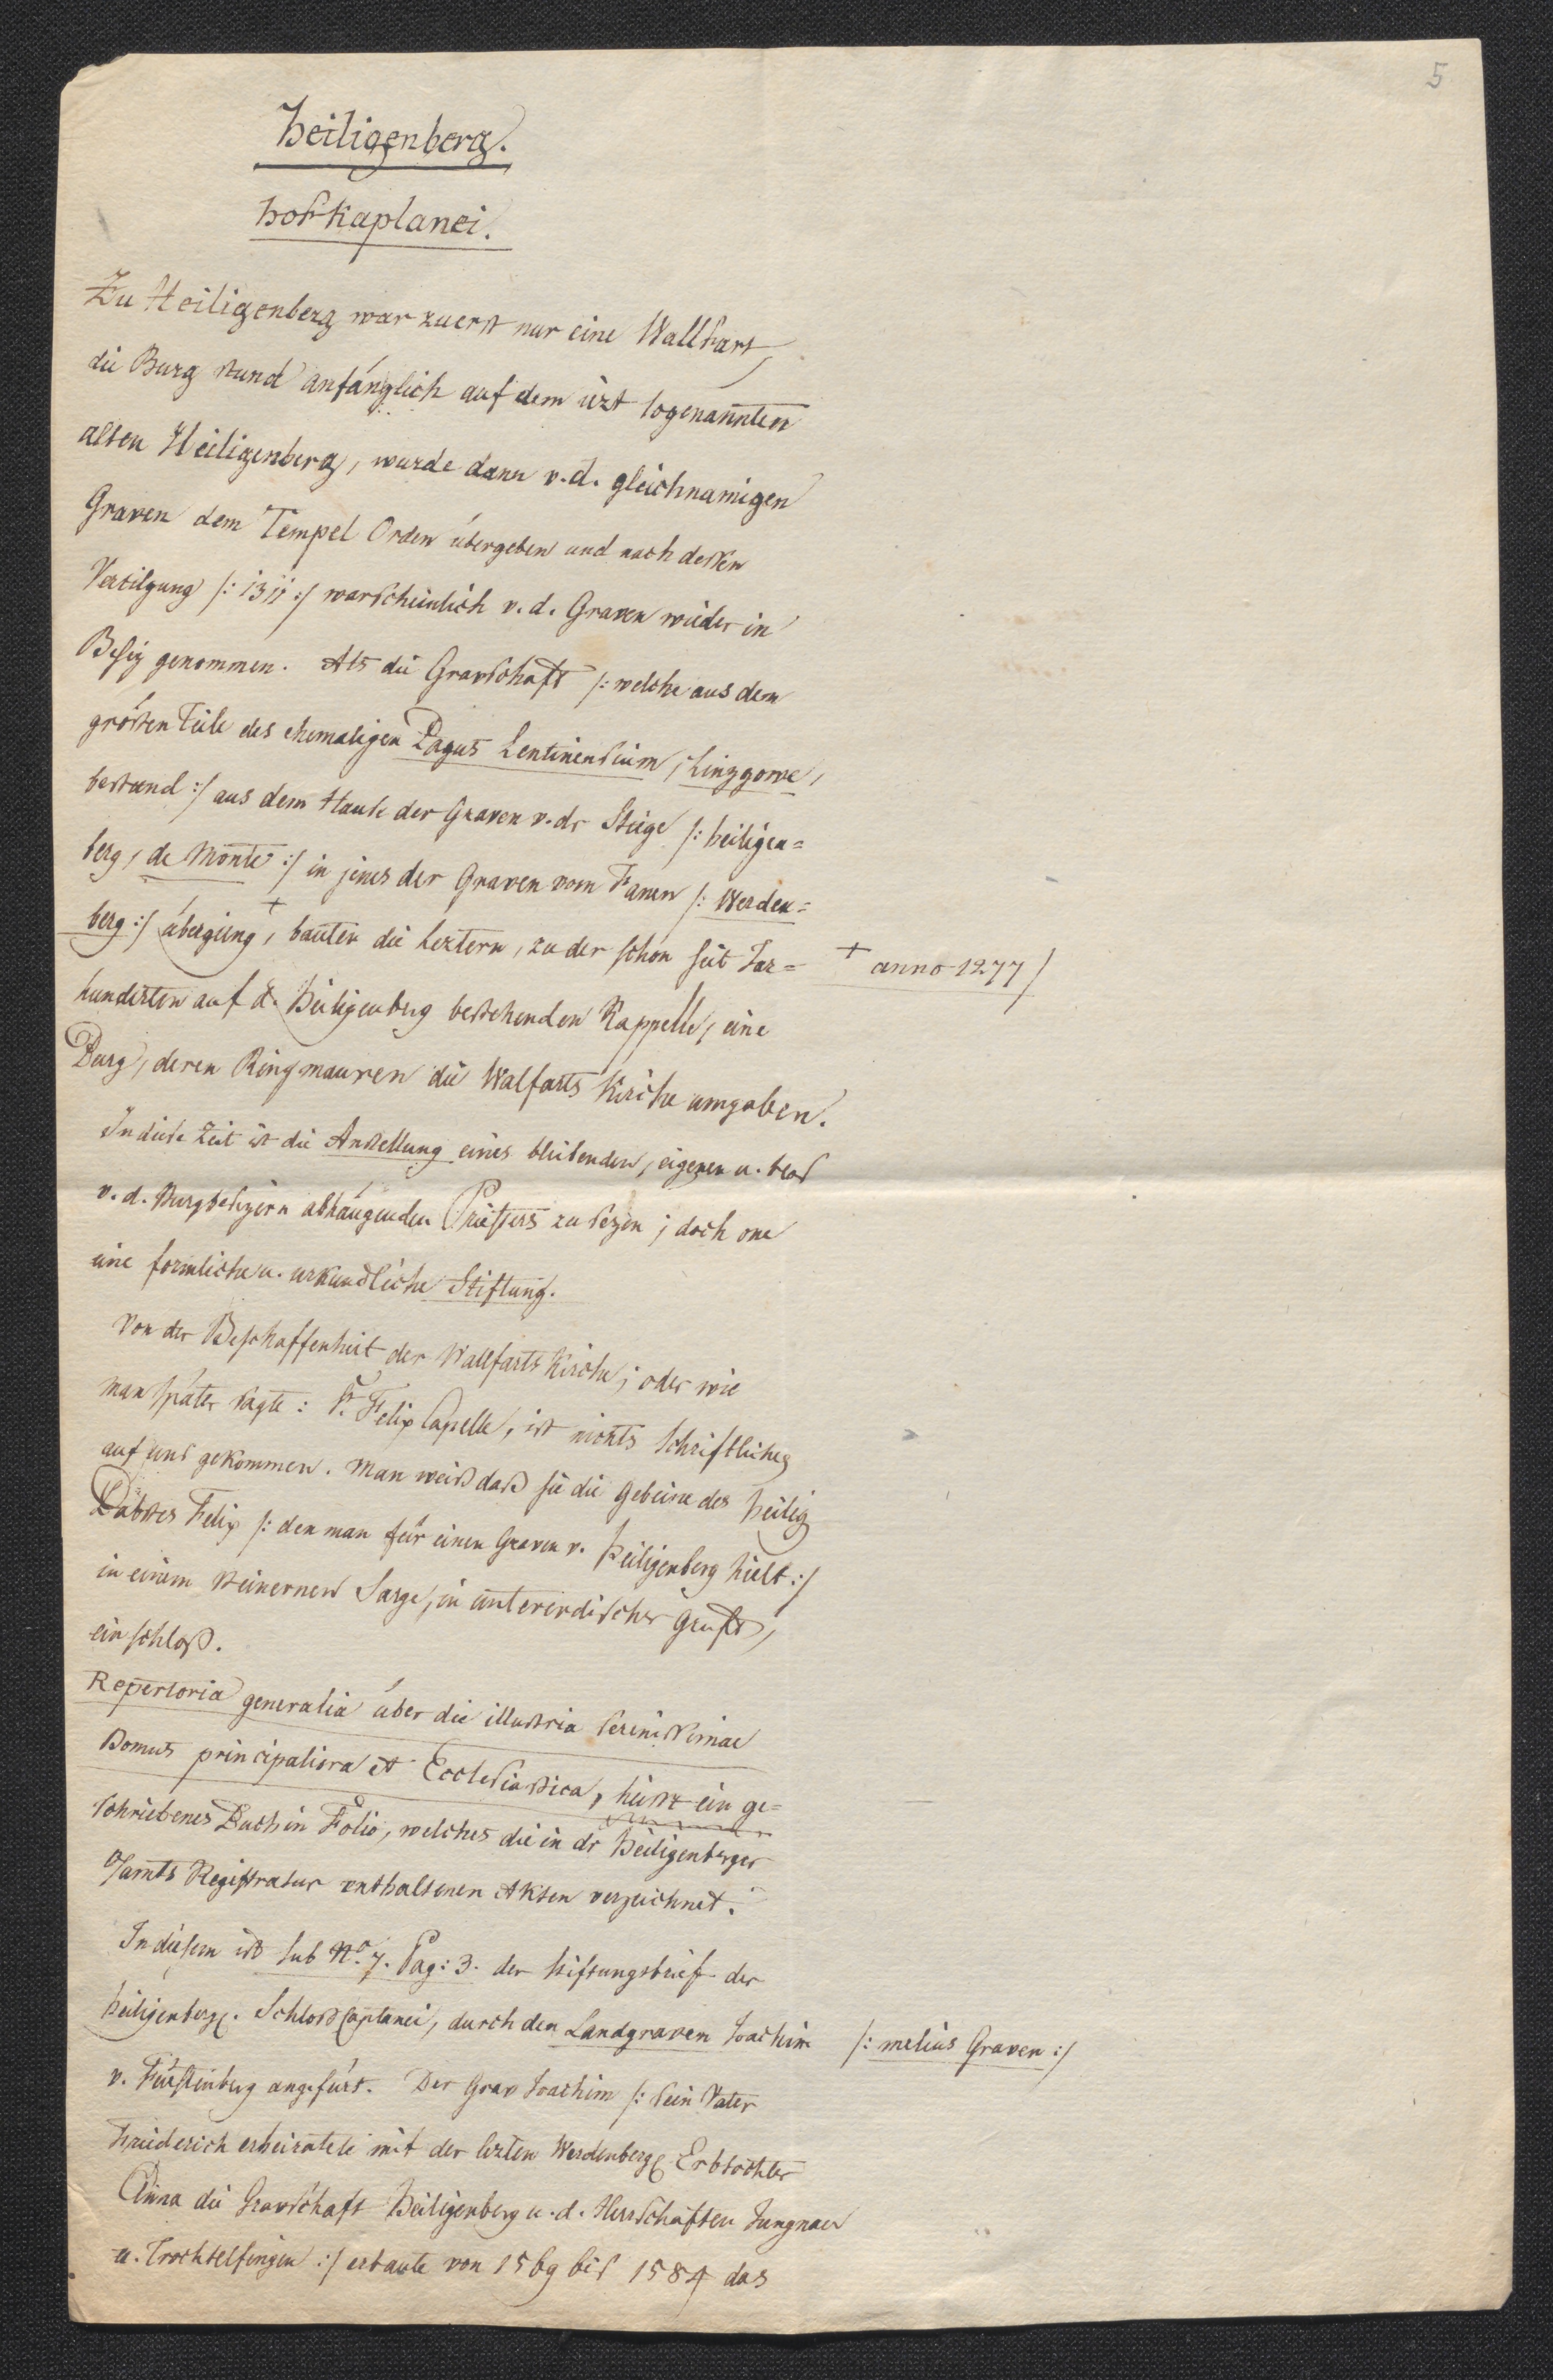 5
Heiligenberg.
Hofkaplanei.
Zu Heiligenberg war zuerst nur eine Wallfart,
die Burg stund anfänglich auf dem izt sogenannten
alten Heiligenberg, wurde dann v. d. gleichnamigen
Graven dem Tempel Orden übergeben und nach dessen
Vertilgung /: 1311 :/ warscheinlich v. d. Graven wieder in
Besiz genommen. Als die Gravschaft /: welche aus dem
grösten Teile des ehemaligen Pagus Lentinensium, Linzgowe,
bestund :/ aus dem Hause der Graven v. dr Steige /: Heiligen=
berg, de Monte :/ in jenes der Graven vom Fanen /: Werden=
berg :/ übergieng, + bauten die leztern, zu der schon seit Jar=
+ anno 1277 /
hunderten auf d. Heiligenberg bestehenden Kappelle, eine
Burg, deren Ringmauren die Walfarts Kirche umgaben.
In diese Zeit ist die Anstellung eines bleibenden, eigenen u. blos
v. d. Burgbesizern abhängenden Priesters zu sezen; doch one
eine formliche u. urkundliche Stiftung.
Von der Beschaffenheit der Wallfarts Kirche; oder wie
man später sagte: St. Felix Capelle, ist nichts Schriftliches
auf uns gekommen. Man weiß daß sie die Gebeine des Heilig
Pabstes Felix /: den man für einen Graven v. Heiligenberg hielt :/
in einem steinernen Sarge, in unterirdischer Gruft,
einschloß.
Repertoria generalia über die illustria serenissimae
Domus principaliora et Ecclesiastica, heist ein ge=
schriebenes Buch in Folio, welches die in dr Heiligenberger
O/amts Registratur enthaltenen Akten verzeichnet.
In diesem ist sub No. 7. Pag: 3. der Stiftungsbrief der
Heiligenberg. Schloßcaplanei, durch den Landgraven Joachim
/: melius Graven :/
v. Fürstenberg angefürt. Der Grav Joachim /: sein Vater
Friederich erheiratete mit der lezten Werdenberg. Erbtochter
Anna die Gravschaft Heiligenberg u. d. Herrschaften Jungnau
u. Trochtelfingen :/ erbaute von 1569 bis 1584 das